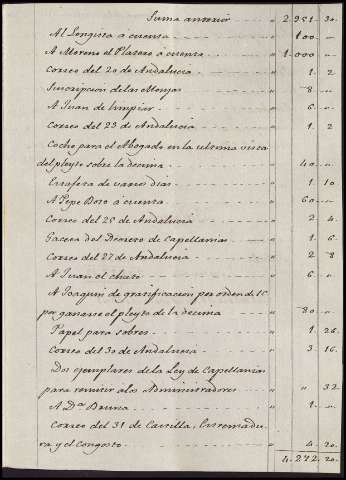 Suma anterior " 2.951 30.
Al Longista a cuenta " 100 "
A Moreno el Platero a cuenta " 1.000 "
Correo del 20 de Andalucia " 1. 2
Suscripcion de las Monjas " 8 "
A Juan de limpiar " 6 "
Correo del 23 de Andalucia " 1. 2
Coche para el Abogado en la ultima vista
del pleyto sobre la decima " 40 "
Estafeta de varios dias " 1. 10
A Pepe Boto a cuenta " 60 "
Correo del 25 de Andalucia " 2. 4.
Gaceta del Decreto de Capellanias " 1. 6.
Correo del 27 de Andalucia " 2. 8
A Juan el chato " 6 "
A Joaquin de gratificacion por orden de
por ganarse el pleyto de la decima " 80 "
Papel para sobres " 1. 26.
Correo del 30 de Andalucia " 3. 16.
Dos ejemplares de la Ley de Capellanias
para remitir a los Administradores " " 32
A Da. Bruna " 1. "
Correo del 31 de Castilla, Estremadu-
ra y el Congosto " 4. 20.
4.272. 20.